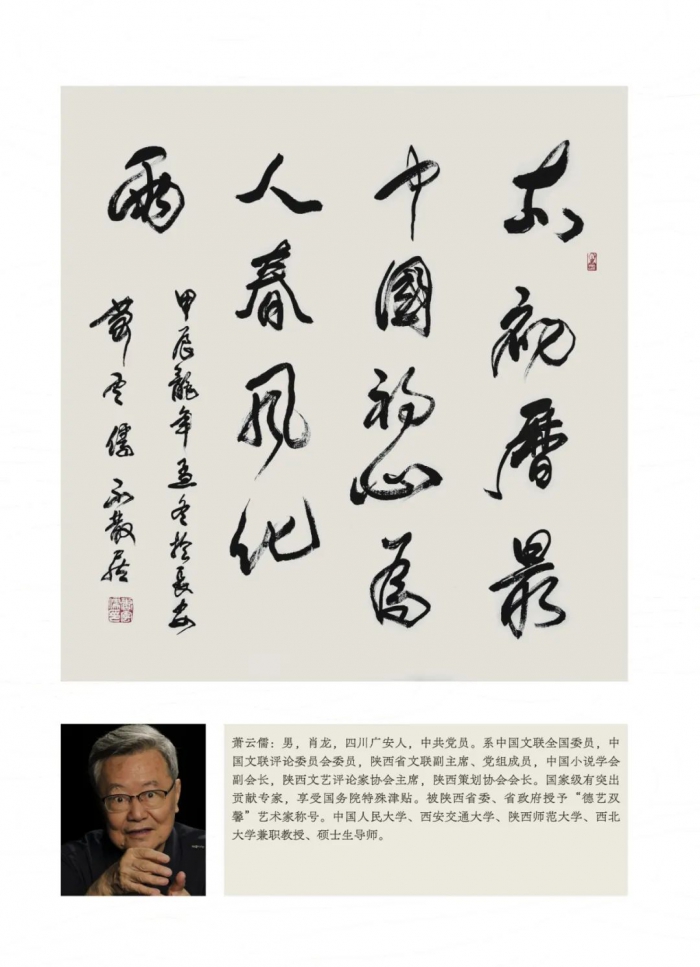 曆最
中國初心為
人春風化
雨
甲辰龍年孟冬於長安
蕭云儒 不散居
萧云儒：男，肖龙，四川广安人，中共党员。系中国文联全国委员，中
国文联评论委员会委员，陕西省文联副主席、党组成员，中国小说学会
副会长，陕西文艺评论家协会主席，陕西策划协会会长。国家级有突出
贡献专家，享受国务院特殊津贴。被陕西省委、省政府授予“德艺双
馨”艺术家称号。中国人民大学、西安交通大学、陕西师范大学、西北
大学兼职教授、硕士生导师。